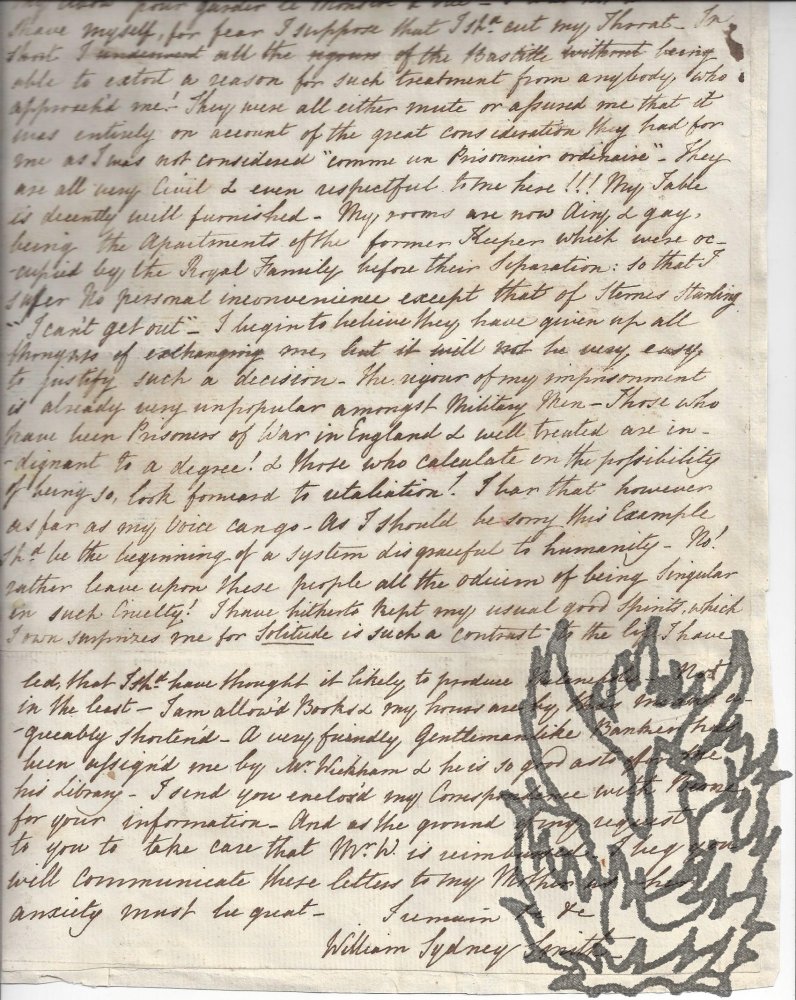 pour garder le Monsieur &
shave myself, for fear I suppose that I shd. cut my Throat. In
short I underwent all the rigours of the Bastille without being
able to extort a reason for such treatment from anybody who
approach'd me! They were all either mute or assured me that it
was entirely on account of the great consideration they had for
me as I was not considered "comme un Prisonnier ordinaire" - They
are all very Civil & even respectful to me here!!! My Table
is decently well furnished - My rooms are now Airy & gay,
being the Apartments of the former Keeper which were oc-
-cupied by the Royal Family before their Separation: so that I
suffer No personal inconvenience except that of Sternes Starling
"I can't get out" - I begin to believe they have given up all
thoughts of exchanging me, but it will not be very easy
to justify such a decision - the rigour of my imprisonment
is already very unpopular amongst Military Men - Those who
have been Prisoners of War in England & well treated are in-
-dignant to a degree! & those who calculate on the possibility
of being so, look forward to retaliation! I bar that however
as far as my Voice can go - As I should be sorry this Example
shd. be the beginning of a system disgraceful to humanity - No!
rather leave upon these people all the odium of being Singular
in such Cruelty! I have hitherto kept my usual good Spirits, which
I own surprizes me for Solitude is such a contrast to the life I have
led, that I shd. have thought it likely to produce - Not
in the least - I am allow'd Books & my hours are by this means a-
-greeably shorten'd - A very friendly Gentlemanlike Banker has
been assign'd me by Mr. Wickham & he is so good as to
his Library - I send you enclos'd my Correspondence with
for your information - And as the ground of my request
to you to take care that Mr. W. is reimbursed. I beg you
will Communicate these letters to my Mother as her
anxiety must be great - I remain &c
William Sydney Smith